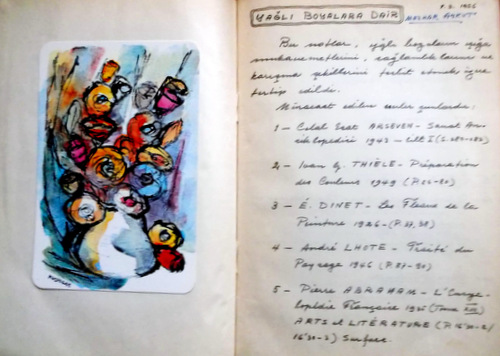 YAĞLI BOYALARA DAİR
Bu notlar, yağlı boyaların ışığa
mukavemetlerini, sağlamlıklarını ve
karışma şekillerini tesbit etmek üzere
tertip edildi.
Müracaat edilen eserler şunlardır:
1 — Celal Esat ARSEVEN - Sanat An-
siklopedisi 1943 - cilt I
2 - Ivan G. THIÈLE - Préparation
des Couleurs 1949
3 - É. DINET - Les Fléaux de la
Peinture 1926 -
4 - André LHOTE - Traité du
Paysage 1946
5 - Pierre ABRAHAM - L'Encyc-
lopédie Française 1935 (Tome
ARTS et LITÉRATURE